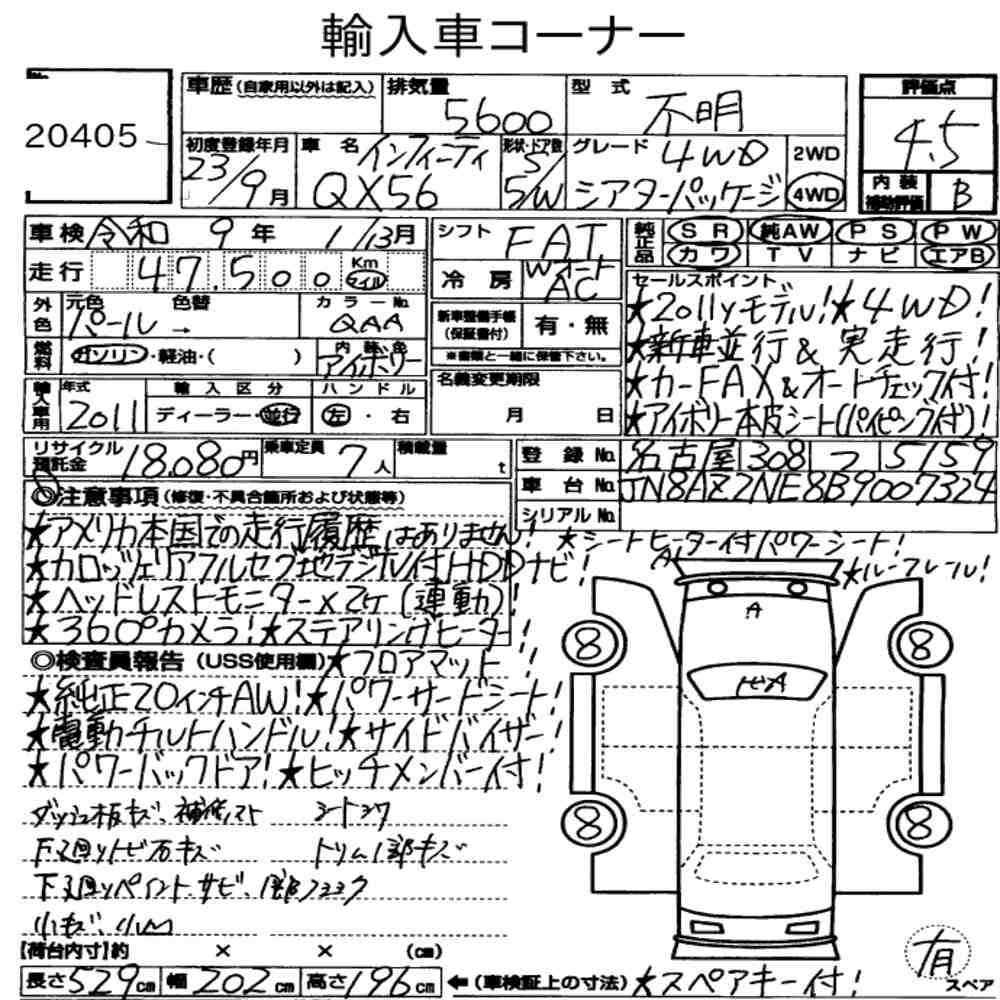 輸入車コーナー
No.
20405
車歴(自家用以外は記入)
排気量
5600
型式
不明
評価点
4.5
初度登録年月
23/9月
車名
インフィニティ
QX56
形状・ドア数
5/
S/W
グレード
4WD
シアターパッケージ
2WD
4WD
内装
補助評価
B
車検 令和 9年 1/13月
シフト
FAT
純正品
SR 純AW PS PW
カワ TV ナビ エアB
走行 47,500
Km
マイル
冷房
Wオート
AC
セールスポイント
★2011yモデル!★4WD!
★新車並行&実走行!
★カーFAX&オートチェック付!
★アイボリー本皮シート(パイピング付)!
外色
元色 色替
パール →
カラーNo.
QAA
新車整備手帳
(保証書付)
有・無
※書類と一緒に保管下さい。
燃料
ガソリン・軽油・( )
内装色
アイボリー
輸入車用
年式
2011
輸入区分
ディーラー・並行
ハンドル
左・右
名義変更期限
月 日
リサイクル
預託金
18,080円
乗車定員
7人
積載量
t
登録No.
名古屋 308 つ 5159
車台No.
JN8AZ2NE8B9007324
シリアルNo.
◎注意事項(修復・不具合箇所および状態等)
★アメリカ本国での走行履歴はありません!
★シートヒーター付パワーシート!
★カロッツェリアフルセグ地デジTV付HDDナビ!
★ルーフレール!
★ヘッドレストモニター×2ヶ(連動)!
★360°カメラ!★ステアリングヒーター!
◎検査員報告(USS使用欄)★フロアマット!
★純正20インチAW!★パワーサードシート!
★電動チルトハンドル!★サイドバイザー!
★パワーバックドア!★ヒッチメンバー付!
ダッシュ板キズ、補修
トリム1部キズ
小キズ、
A1
A
8
8
8
8
【荷台内寸】約 × × (cm)
有
スペア
長さ529cm 幅202cm 高さ196cm ←(車検証上の寸法)★スペアキー付!